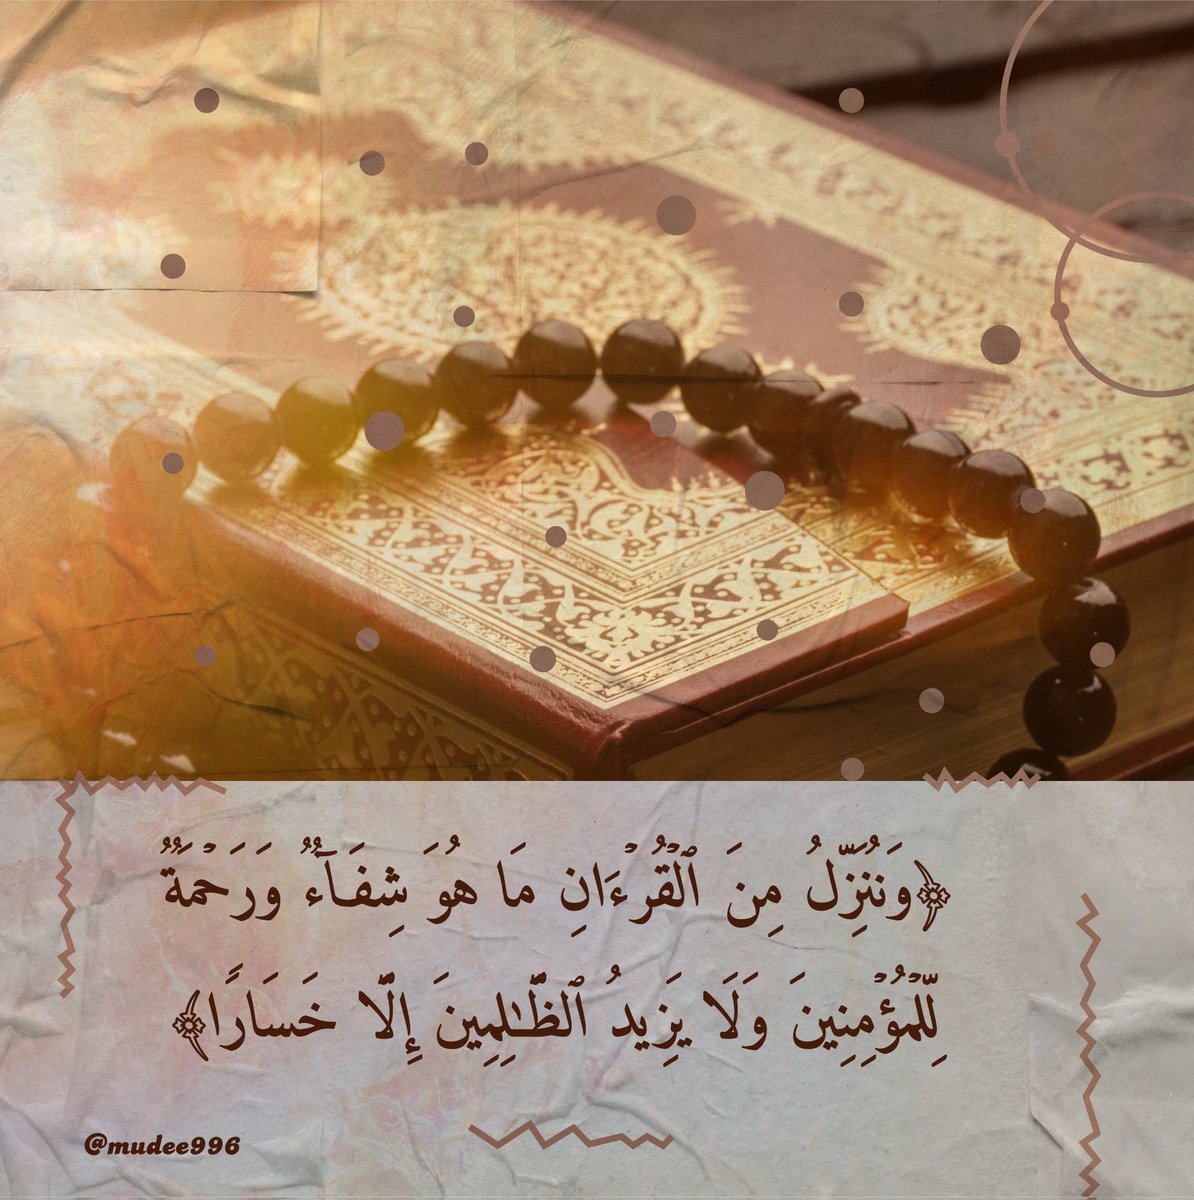 ﴿وَنُنَزِّلُ مِنَ ٱلۡقُرۡءَانِ مَا هُوَ شِفَآءٞ وَرَحۡمَةٞ
لِّلۡمُؤۡمِنِينَ وَلَا يَزِيدُ ٱلظَّٰلِمِينَ إِلَّا خَسَارٗا﴾
@mudee996